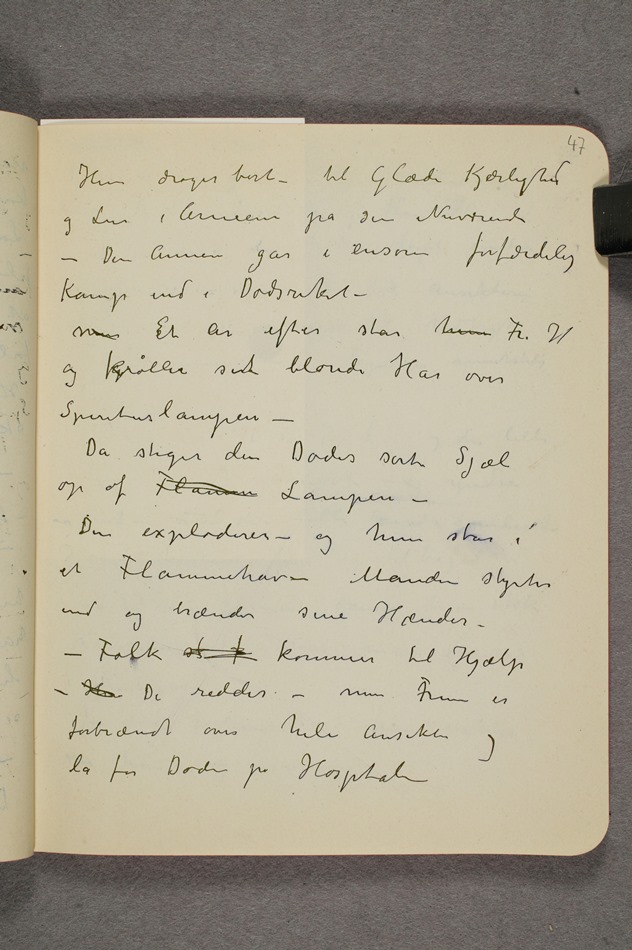 47
Hun drager bort – til Glæde Kjærlighed
og Lun i Armene på den Nuværende
– Den Annen går i ensom forfærdelig
Kamp ind i Dødsriket –
men Et År efter står hun Fr. H
og krøller sit blonde Hår over
Spirituslampen –
Da stiger den Dødes sorte Sjæl
op af Flammen Lampen –
Den exploderer – og hun står i
et Flammehav – Manden styrter
ind og brænder sine Hænder –
– Folk kommer til Hjælp
– De reddes – men Fruen er
forbrændt over hele Ansikte og
lå for Døden på Hospitalet